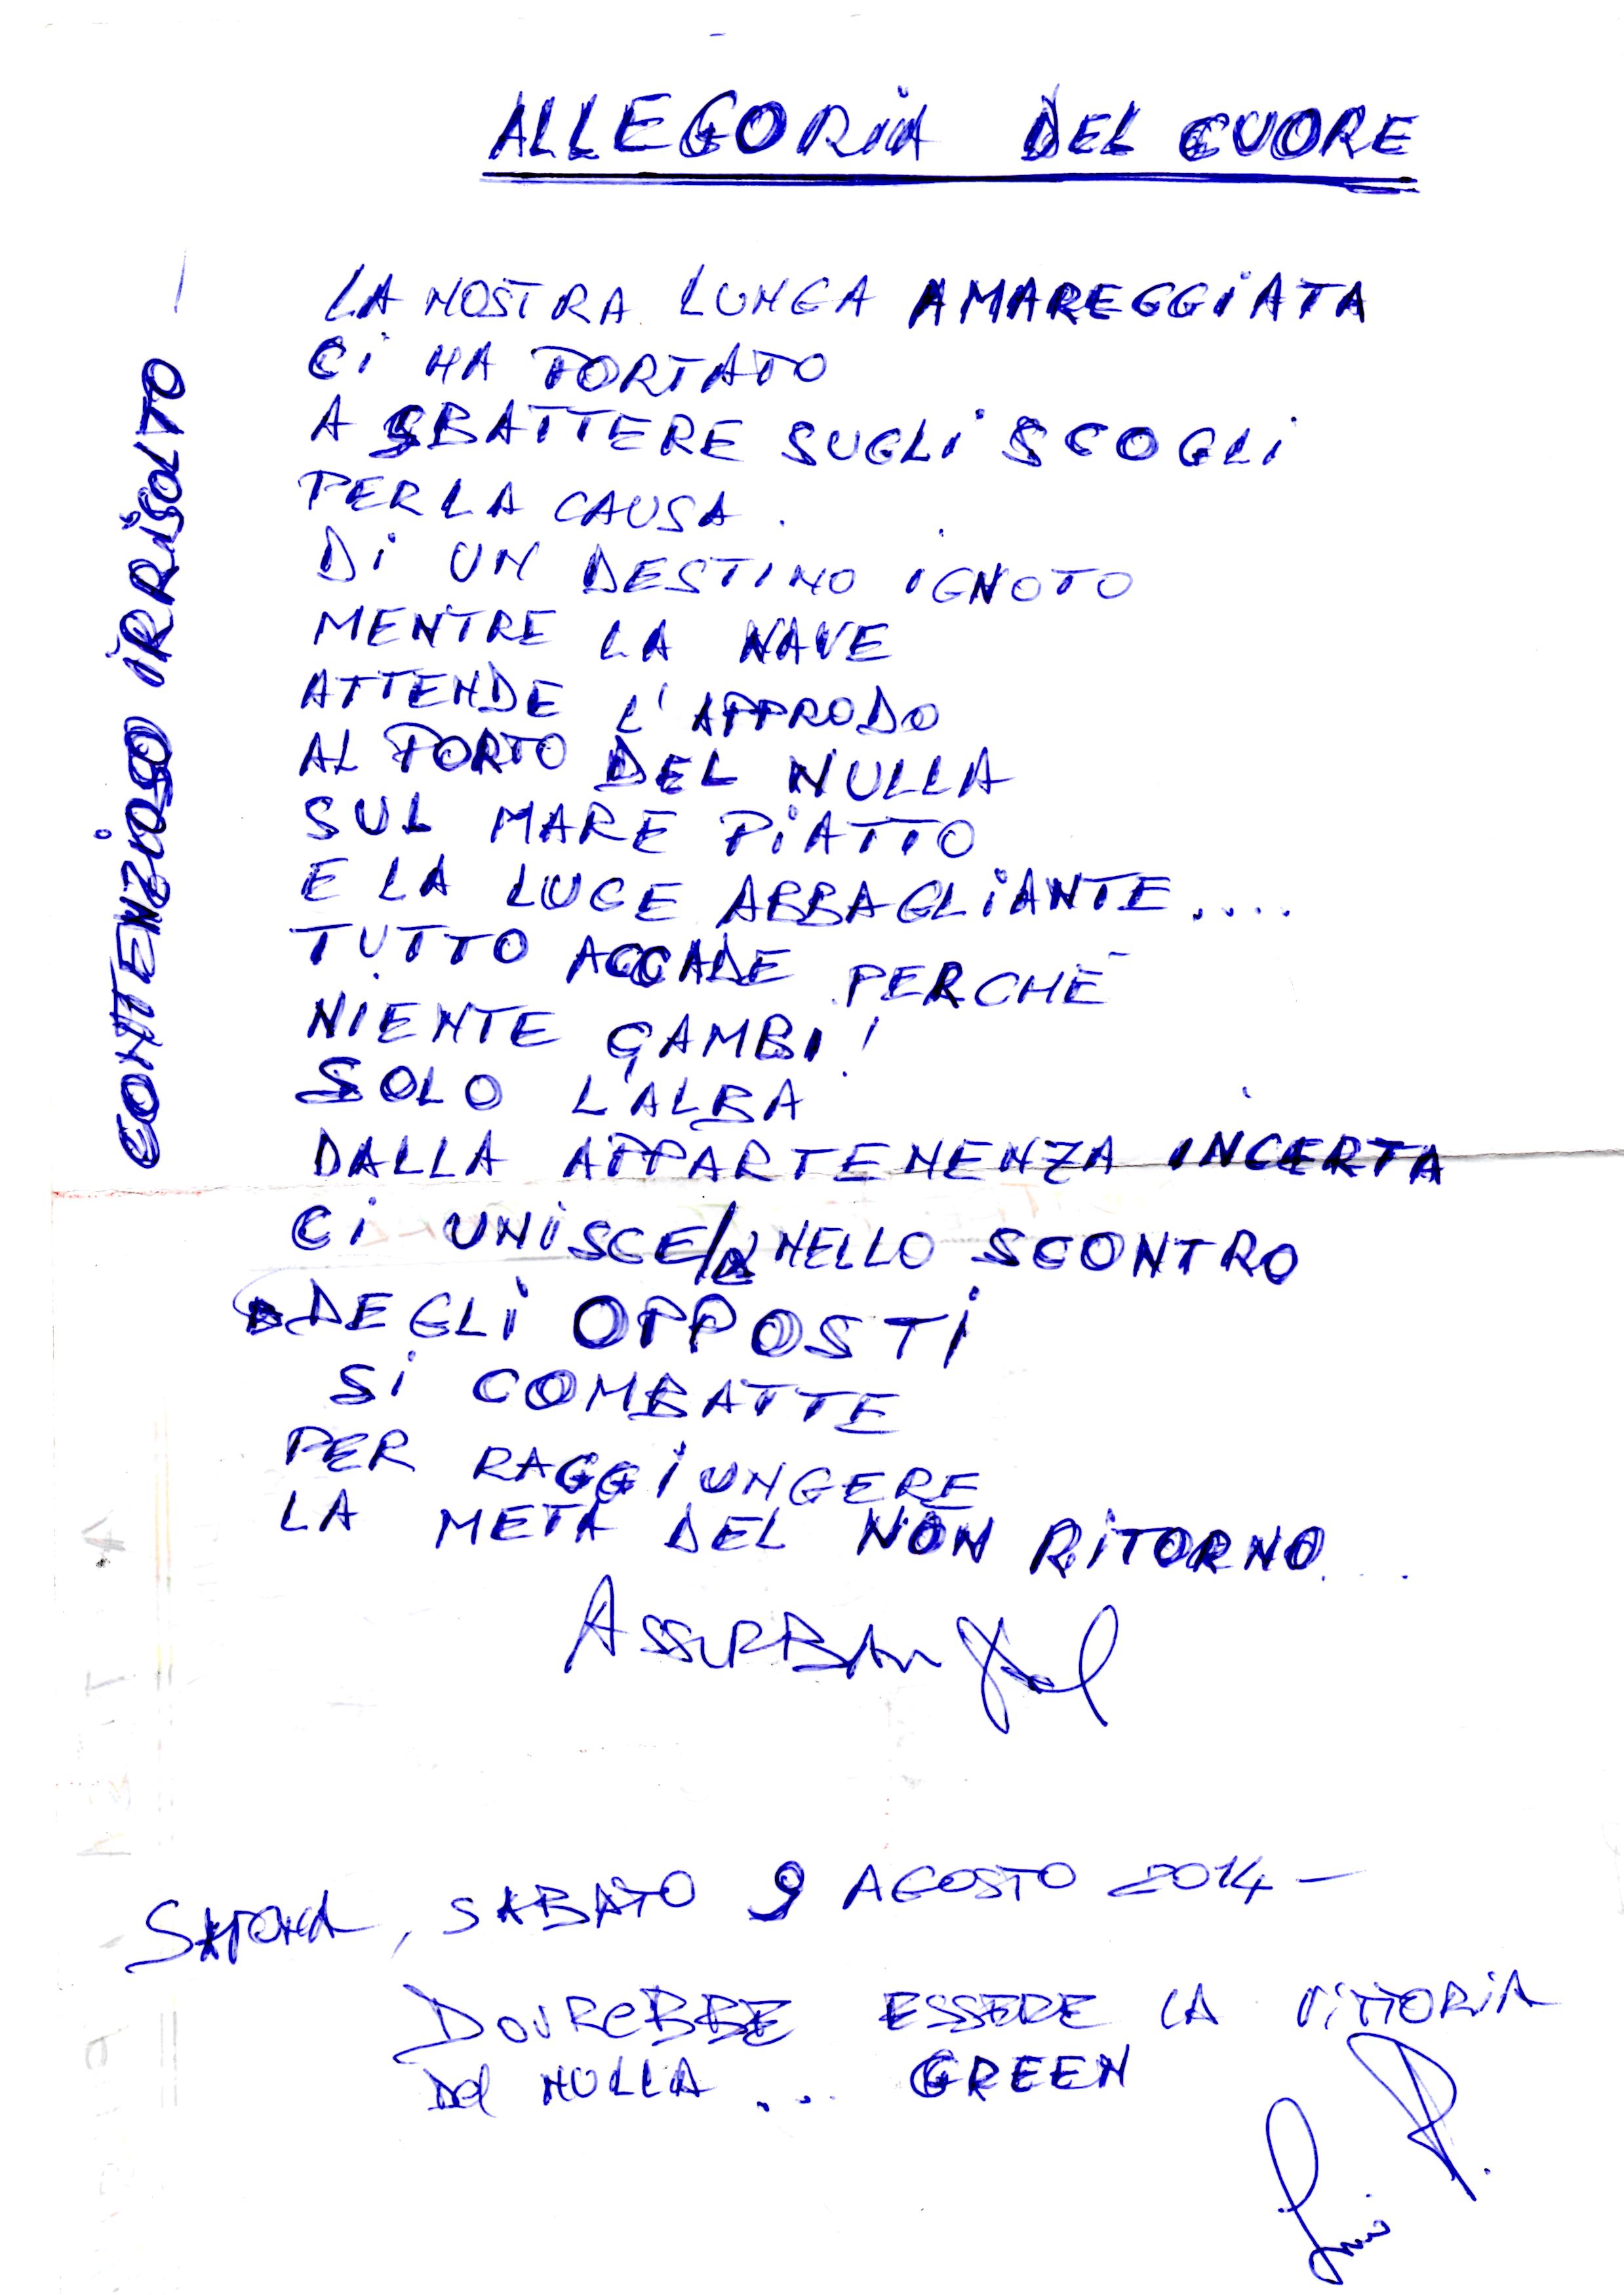 ALLEGORIA DEL CUORE
CONTENZIOSO IRRISOLTO
LA NOSTRA LUNGA AMAREGGIATA
CI HA PORTATO
A SBATTERE SUGLI SCOGLI
PER LA CAUSA
DI UN DESTINO IGNOTO
MENTRE LA NAVE
ATTENDE L'APPRODO
AL PORTO DEL NULLA
SUL MARE PIATTO
E LA LUCE ABBAGLIANTE....
TUTTO ACCADE PERCHÉ
NIENTE CAMBI!
SOLO L'ALBA
DALLA APPARTENENZA INCERTA
CI UNISCE/ NELLO SCONTRO
DEGLI OPPOSTI
SI COMBATTE
PER RAGGIUNGERE
LA META DEL NON RITORNO...
SABATO 9 AGOSTO 2014 –
DOVREBBE ESSERE LA VITTORIA
Del NULLA ... GREEN